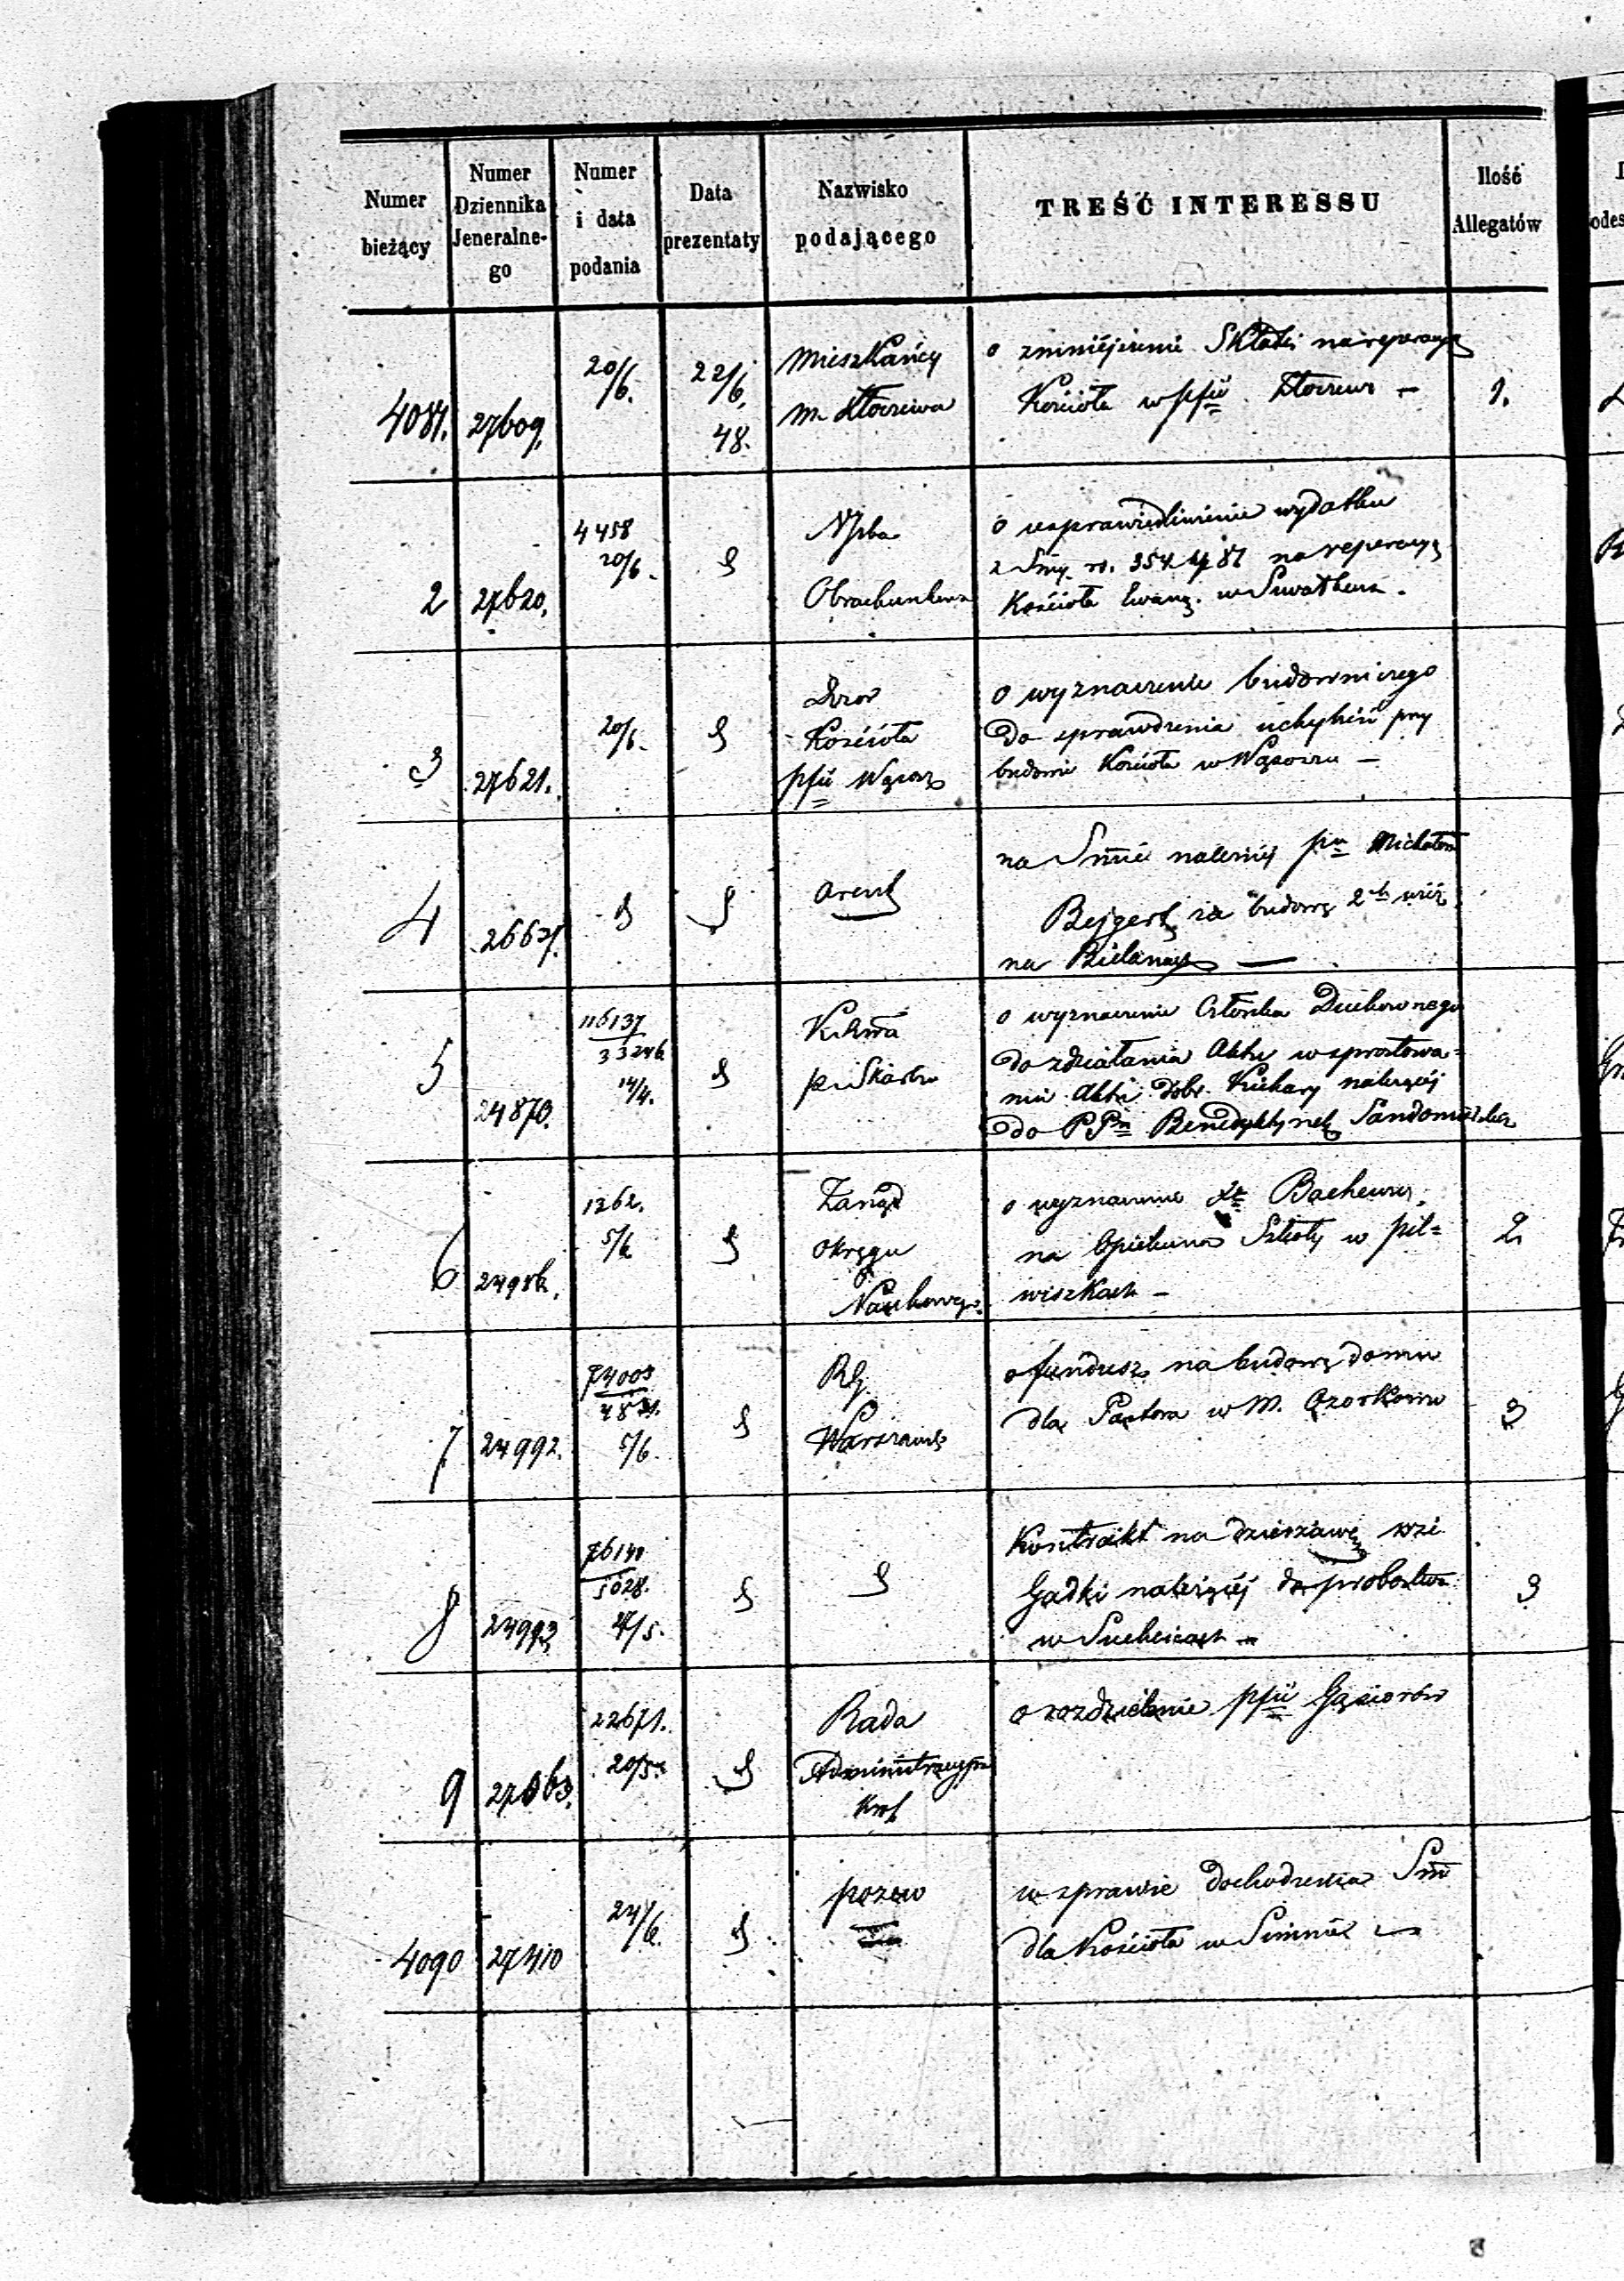 Numer bieżący
Numer Dziennika Jeneralne-go
Numer i data podania
Data prezentaty
Nazwisko podającego
TREŚĆ INTERESSU
Ilość Allegatów
4081. 27609. 20/6. 22/6, 48. Mieszkańcy m. Złoczewa
o zmniejszenie Składki na reperacyę
Kościoła w pfii Złoczew – 1.
2 27620. 4458 20/6. Obrachunkowa
o usprawiedliwienie wydatku
na reperacyę
Kościoła Ewang. w Suwałkach.
3 27621. 20/6. Dozor Kościoła pfii Wąsosz
o wyznaczenie budowniczego
do sprawdzenia uchybień przy
budowie Kościoła w Wąsoszu –
4 26627. Areszt
na Summie należnej pu Michałowi
Bejgert za budowę 2ch wież
na Bielanach —
5 24870. 116137 33246 14/4. p. i Skarbu
o wyznaczenie Członka Duchownego
do zdziałania Aktu w sprostowa=
niu Aktu dobr Kichary należącej
do PPn Benedyktynek Sandomirskich
6 24986. 1262. 5/6. Zarząd Okręgu Naukowego.
o wyznaczenie
na Opiekuna Szkoły w Pil=
wiszkach – 2
7 24992. 74003 5/6. RG Warszawski
o fundusz na budowę domu
dla Pastora w M. Ozorkowie 3
8 24993 76140 5028.
Kontrakt na dzierżawę wsi
Gadki należącej do probostwa
w Suchcicach – 3
9 22671. 20/5. Rada Administracyjna Krol
o rozdzielenie pfii Gąsiorów
4090 27410 24/6. pozew
w sprawie dochodzenia Sm
dla Kościoła w Simnie –